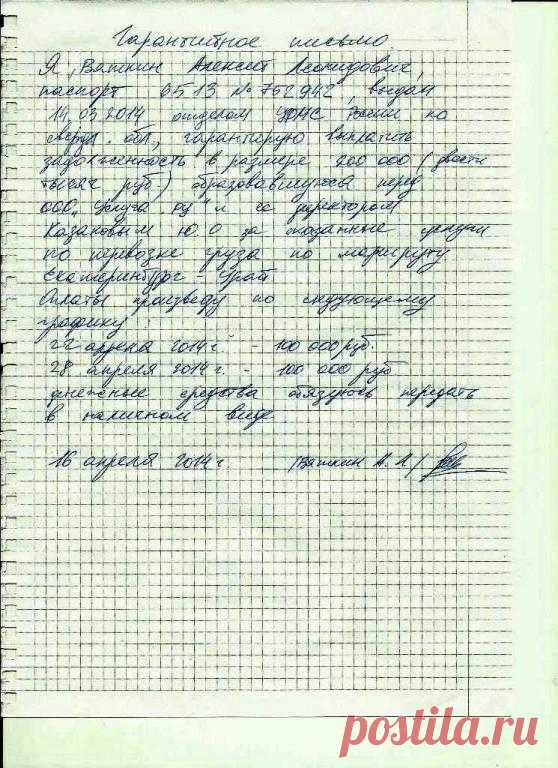 Гарантийное письмо.
Я, Вяткин Алексей Леонидович,
паспорт 6513 № 752942, выдан
14.03.2014 отделом УФМС России по
Сверд. обл, гарантирую выплатить
задолженность в размере 200 000 (двести
тысяч руб) образовавшуюся перед
ООО "Услуга и ее директором
Казаковым Ю.О за оказанные услуги
по перевозке груза по маршруту
Екатеринбург -
Оплаты произведу по следующему
графику
22 апреля 2014 г. - 100 000 руб.
28 апреля 2014 г. - 100 000 руб
денежные средства обязуюсь передать
в наличном виде
16 апреля 2014 г. Вяткин А. Л /
postila.ru